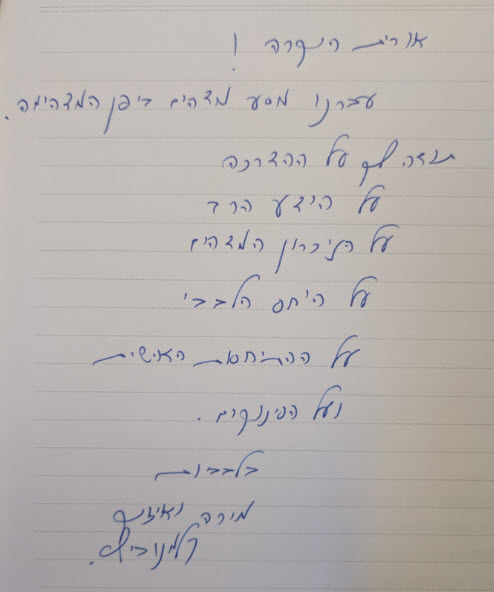 אורית היקרה !
עברנו מסע מדהים ביפן המדהימה.
תודה לך על ההדרכה
על הידע הרב
על הזיכרון המדהים
על היחס הלבבי
על ההתיחסות האישית
ועל הפינוקים.
בלבביות
מירה ואיזיק
קלינוביץ.